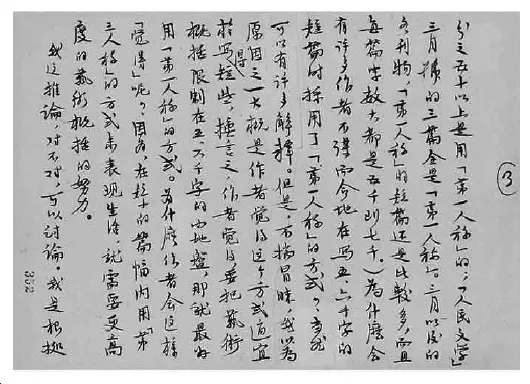 ③
分之五十以上是用「第一人称」的，「人民文学」
三月號的三篇全是「第一人称」。三月以后的
各刊物，「第一人称」的短篇还是比較多，而且
每篇字数大都是五千到七千。）為什麽会
有许多作者不谋而合地在写五、六千字的
短篇时採用了「第一人称」的方式？当然
可以有许多解释。但是，不揣冒昧，我以为
原因之一大概是作者觉得这个方式适宜
於写得短些，换言之，作者觉得要把藝術
概括限制在五、六千字的小地盤，那就最好
用「第一人称」的方式。為什麽作者会这样
「觉得」呢？因为，在短小的篇幅内用「第
三人称」的方式来表现生活，就需要更高
度的藝術概括的努力。
我这推論，对不对，可以讨論。我是根据
352